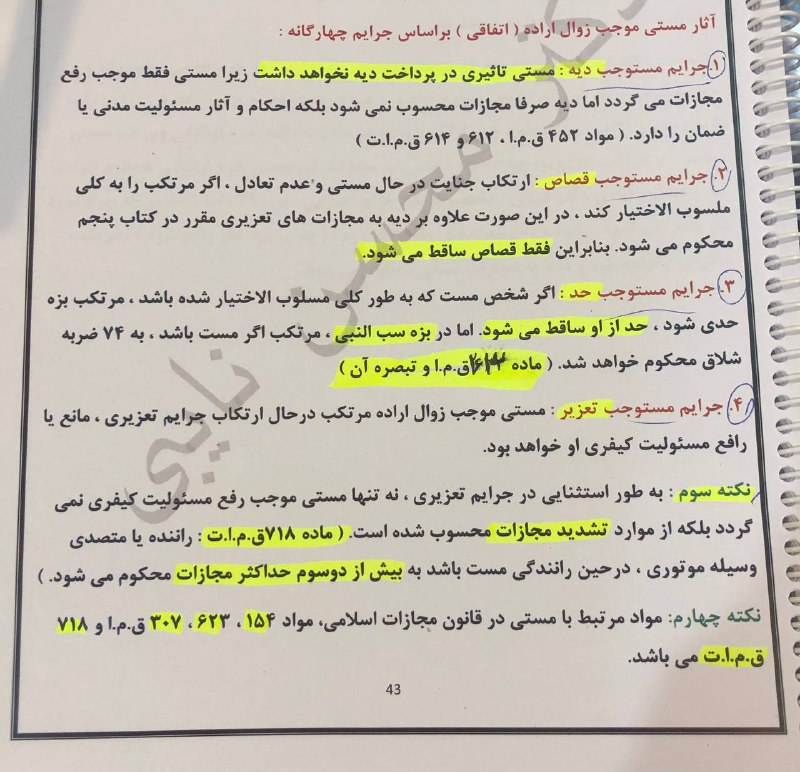 آثار مستی موجب زوال اراده ( اتفاقی ) براساس جرایم چهارگانه :
۱. جرایم مستوجب دیه : مستی تاثیری در پرداخت دیه نخواهد داشت زیرا مستی فقط موجب رفع
مجازات می گردد اما دیه صرفا مجازات محسوب نمی شود بلکه احکام و آثار مسئولیت مدنی یا
ضمان را دارد. ( مواد ۴۵۲ ق.م.ا ، ۶۱۲ و ۶۱۴ ق.م.ا.ت )
۲. جرایم مستوجب قصاص : ارتکاب جنایت در حال مستی و عدم تعادل ، اگر مرتکب را به کلی
ملسوب الاختیار کند ، در این صورت علاوه بر دیه به مجازات های تعزیری مقرر در کتاب پنجم
محکوم می شود. بنابراین فقط قصاص ساقط می شود.
۳. جرایم مستوجب حد : اگر شخص مست که به طور کلی مسلوب الاختیار شده باشد ، مرتکب بزه
حدی شود ، حد از او ساقط می شود. اما در بزه سب النبی ، مرتکب اگر مست باشد ، به ۷۴ ضربه
شلاق محکوم خواهد شد. ( ماده ق.م.ا و تبصره آن )
۴. جرایم مستوجب تعزیر : مستی موجب زوال اراده مرتکب درحال ارتکاب جرایم تعزیری ، مانع یا
رافع مسئولیت کیفری او خواهد بود.
نکته سوم : به طور استثنایی در جرایم تعزیری ، نه تنها مستی موجب رفع مسئولیت کیفری نمی
گردد بلکه از موارد تشدید مجازات محسوب شده است. ( ماده ۷۱۸ ق.م.ا.ت : راننده یا متصدی
وسیله موتوری ، درحین رانندگی مست باشد به بیش از دوسوم حداکثر مجازات محکوم می شود. )
نکته چهارم: مواد مرتبط با مستی در قانون مجازات اسلامی، مواد ۱۵۴ ، ۶۲۳ ، ۳۰۷ ق.م.ا و ۷۱۸
ق.م.ا.ت می باشد.
43
دکتر محسن نایچی